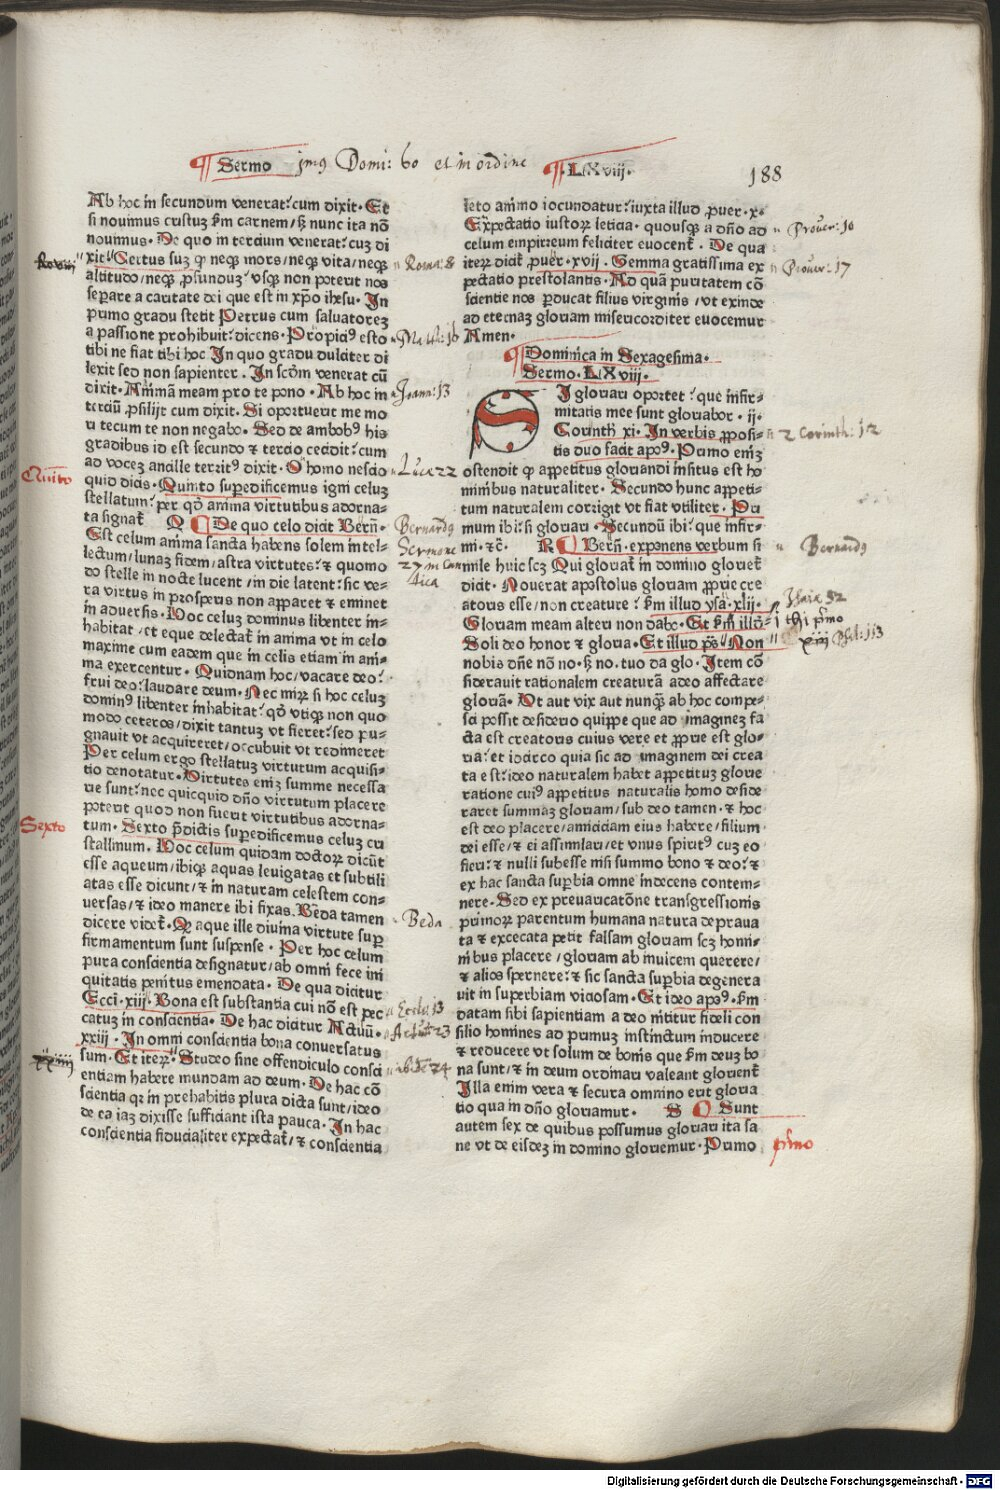 Sermo jmus Domi: 60 et in ordine LXviij.
188
Ab hoc in secundum venerat: cum dixit. Et
si nouimus cristuz ẜm carnem/ sꝫ nunc ita nō
nouimus. De quo in tercium venerat: cuz di
xit. Certus suz ꝙ neqꝫ mors/ neqꝫ vita/ neqꝫ
altitudo/ neqꝫ ꝓfunduz: vsqꝫ non poterit nos
separe a caritate dei que est in xp̄o ihesu. In
primo gradu stetit Petrus cum saluatorez
a passione prohibuit: dicens. Propiciꝰ esto
tibi ne fiat tibi hoc In quo gradu dulciter di
lexit sed non sapienter. In scd̄m venerat cū
dixit. Animā meam pro te pono. Ab hoc in
terciū ꝓsilijt cum dixit. Si oportuerit me mo
ri tecum te non negabo. Sed de ambobꝰ his
gradibus id est secundo ⁊ tercio cecidit: cum
ad vocez ancille territꝰ dixit. O homo nescio
quid dicis. Quinto supedificemus igni celuz
stellatum: per qd̄ anima virtutibus adorna-
ta signat̄ Q De quo celo dicit Bern̄.
Est celum anima sancta habens solem intel-
lectum/ lunaz fidem/ astra virtutes: ⁊ quomo
do stelle in nocte lucent/ in die latent: sic ve-
ra virtus in prosperis non apparet ⁊ eminet
in aduersis. Hoc celuz dominus libenter in-
habitat/ et eque delectat̄ in anima vt in celo
maxime cum eadem que in celis etiam in ani-
ma exercentur. Quidnam hoc/ vacare deo:
frui deo: laudare deum. Nec miꝝ si hoc celuz
dominꝰ libenter inhabitat: qd̄ vtiqꝫ non quo
modo ceteros/ dixit tantuz vt fieret: sed pu-
gnauit vt acquireret/ occubuit vt redimeret
Per celum ergo stellatuz virtutum acquisi-
tio denotatur. Virtutes eniz summe necessa
rie sunt: nec quicquid dn̄o virtutum placere
poterit quod non fuerit virtutibus adorna-
tum. Sexto p̄dictis supedificemus celuz cri
stallinum. Hoc celum quidam doctoꝝ dicūt
esse aqueum/ ibiqꝫ aquas leuigatas et subtili
atas esse dicunt/ ⁊ in naturam celestem con-
uersas/ ⁊ ideo manere ibi fixas. Beda tamen
dicere videt̄. Q aque ille diuina virtute sup
firmamentum sunt suspense. Per hoc celum
pura conscientia designatur/ ab omni fece ini
quitatis penitus emendata. De qua dicitur
Ecci. xiij. Bona est substantia cui nō est pec
catuz in conscientia. De hac dicitur Actuū.
xxiij. In omni conscientia bona conuersatus
sum. Et iteꝝ. Studeo sine offendiculo consci
entiam habere mundam ad deum. De hac cō
scientia qꝛ in prehabitis plura dicta sunt/ ideo
de ea iaz dixisse sufficiant ista pauca. In hac
conscientia fiducialiter expectat̄/ ⁊ conscientia
Quinto
Sexto
Roma: 8
Joann: 13
Luce 22
Bernardꝰ
Sermone
27 in Can
tica
Beda
Eccli: 13
leto animo iocundatur: iuxta illud ꝓuer. x.
Expectatio iustoꝝ leticia. quousqꝫ a dn̄o ad
celum empirreum feliciter euocent̄. De qua
iteꝝ dicit̄ ꝓuer. xvij. Gemma gratissima ex
pectatio prestolantis. Ad quā puritatem cō
scientie nos perducat filius virginis/ vt exinde
ad eternaz gloriam misericorditer euocemur
Amen.
Dominica in Sexagesima.
Sermo. LXviij.
SI gloriari oportet: que infir-
mitatis mee sunt gloriabor. ij.
Corinth xi. In verbis prposi-
tis duo facit apoꝰ. Primo eniz
ostendit ꝙ appetitus gloriandi insitus est ho
minibus naturaliter. Secundo hunc appeti-
tum naturalem corrigit vt fiat vtiliter. Pri
mum ibi: si gloriari. Secundū ibi: que infir-
mi. ⁊c̄. R Bern̄. exponens verbum si
mile huic scꝫ Qui gloriat̄ in domino gloriet̄
dicit. Nouerat apostolus gloriam ꝓprie cre
atoris esse/ non creature: ẜm illud ysa. xlij.
Gloriam meam alteri non dabo. Et ẜm illd̄
Soli deo honor ⁊ gloria. Et illud ps̄. Non
nobis dn̄e nō no. sꝫ no. tuo da glo. Item cō
siderauit rationalem creaturā adeo affectare
gloriā. Vt aut vix aut nunqꝫ ab hoc compe-
sci possit desiderio quippe que ad imaginez fa
cta est creatoris cuius vere et ꝓprie est glo-
ria: et idcirco quia sic ad imaginem dei crea
ta est: ideo naturalem habet appetituz glorie
ratione cuiꝰ appetitus naturalis homo deside
raret summaz gloriam/ sub deo tamen. ⁊ hoc
est deo placere/ amicitiam eius habere/ filium
dei esse/ ⁊ ei assimilari/ et vnus spiritꝰ cuz eo
fieri: ⁊ nulli subesse nisi summo bono ⁊ deo: ⁊
ex hac sancta supbia omne indecens contem-
nere. Sed ex preuaricatōne transgressionis
primoꝝ parentum humana natura deprauа
ta ⁊ excecata petit falsam gloriam scꝫ homi-
nibus placere/ gloriam ab inuicem querere/
⁊ alios spernere: ⁊ sic sancta supbia degenera
uit in superbiam viciosam. Et ideo apoꝰ. ẜm
datam sibi sapientiam a deo nititur fideli con
silio homines ad primuz instinctum inducere
⁊ reducere vt solum de bonis que ẜm deuz bo
na sunt/ ⁊ in deum ordinari valeant glorient̄
Illa enim vera ⁊ secura omnino erit gloria
tio qua in dn̄o gloriamur. S Sunt
autem sex de quibus possumus gloriari ita sa
ne vt de eisdez in domino gloriemur. Primo
Prouer: 10
Prouer: 17
2 Corinth: 12
Bernardꝰ
Isaia 52
primo
Digitalisierung gefördert durch die Deutsche Forschungsgemeinschaft - DFG